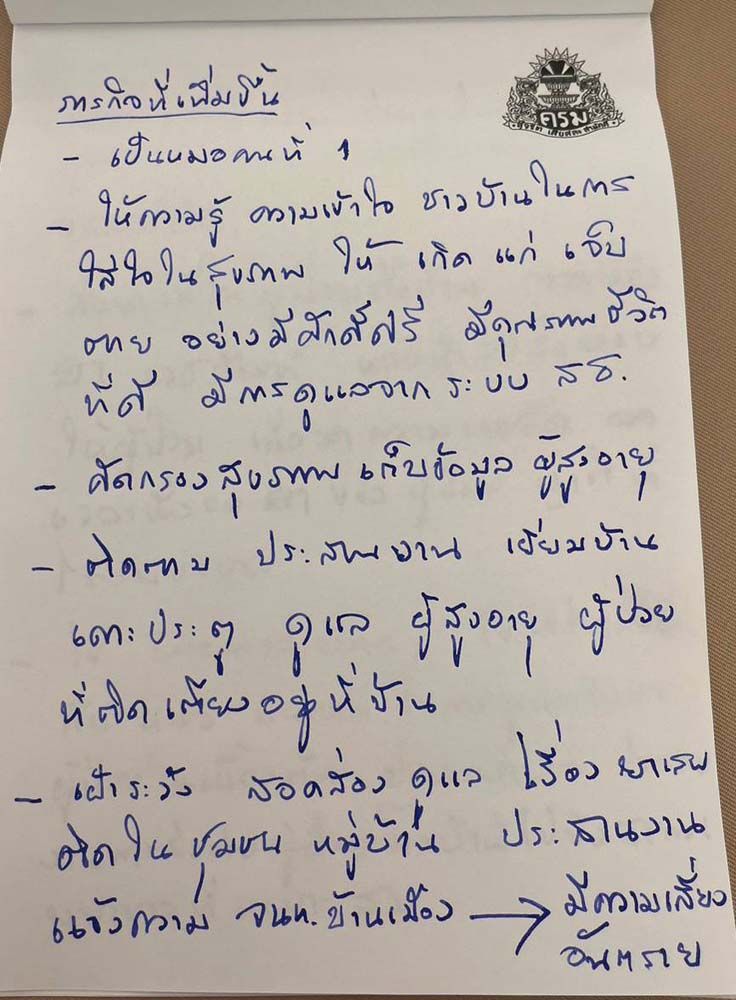 ครม
ซื่อสัตย์ เสียสละ สามัคคี
ภารกิจที่เพิ่มขึ้น
- เป็นหมอคนที่ 1
- ให้ความรู้ ความเข้าใจ ชาวบ้านในการ
ใส่ใจในสุขภาพ ให้ เกิด แก่ เจ็บ
ตาย อย่างมีศักดิ์ศรี มีคุณภาพชีวิต
ที่ดี มีการดูแลจาก ระบบ สธ.
- คัดกรองสุขภาพ เก็บข้อมูล ผู้สูงอายุ
- ติดตาม ประสานงาน เยี่ยมบ้าน
เคาะประตู ดูแล ผู้สูงอายุ ผู้ป่วย
ที่ติดเตียงอยู่ที่บ้าน
- เฝ้าระวัง สอดส่อง ดูแล เรื่อง ยาเสพ
ติดใน ชุมชน หมู่บ้าน ประสานงาน
แจ้งความ จนท.บ้านเมือง → มีความเสี่ยง
อันตราย